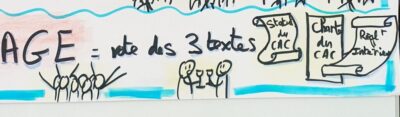 AGE = vote des 3 textes
Statut du CAC
Charte du CAC
Règlt Intérieur